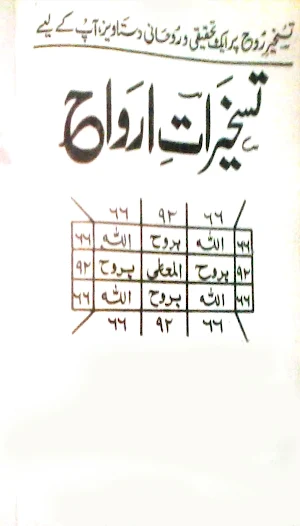 تسخیرِ روح پر ایک تحقیقی و روحانی دستاویز، آپ کے لیے
تسخیراتِ ارواح
۶۶ ۹۲ ۶۶
۶۶ اللہ بروح اللہ ۶۶
۹۲ بروح المعلی بروح ۹۲
۶۶ اللہ بروح اللہ ۶۶
۶۶ ۹۲ ۶۶